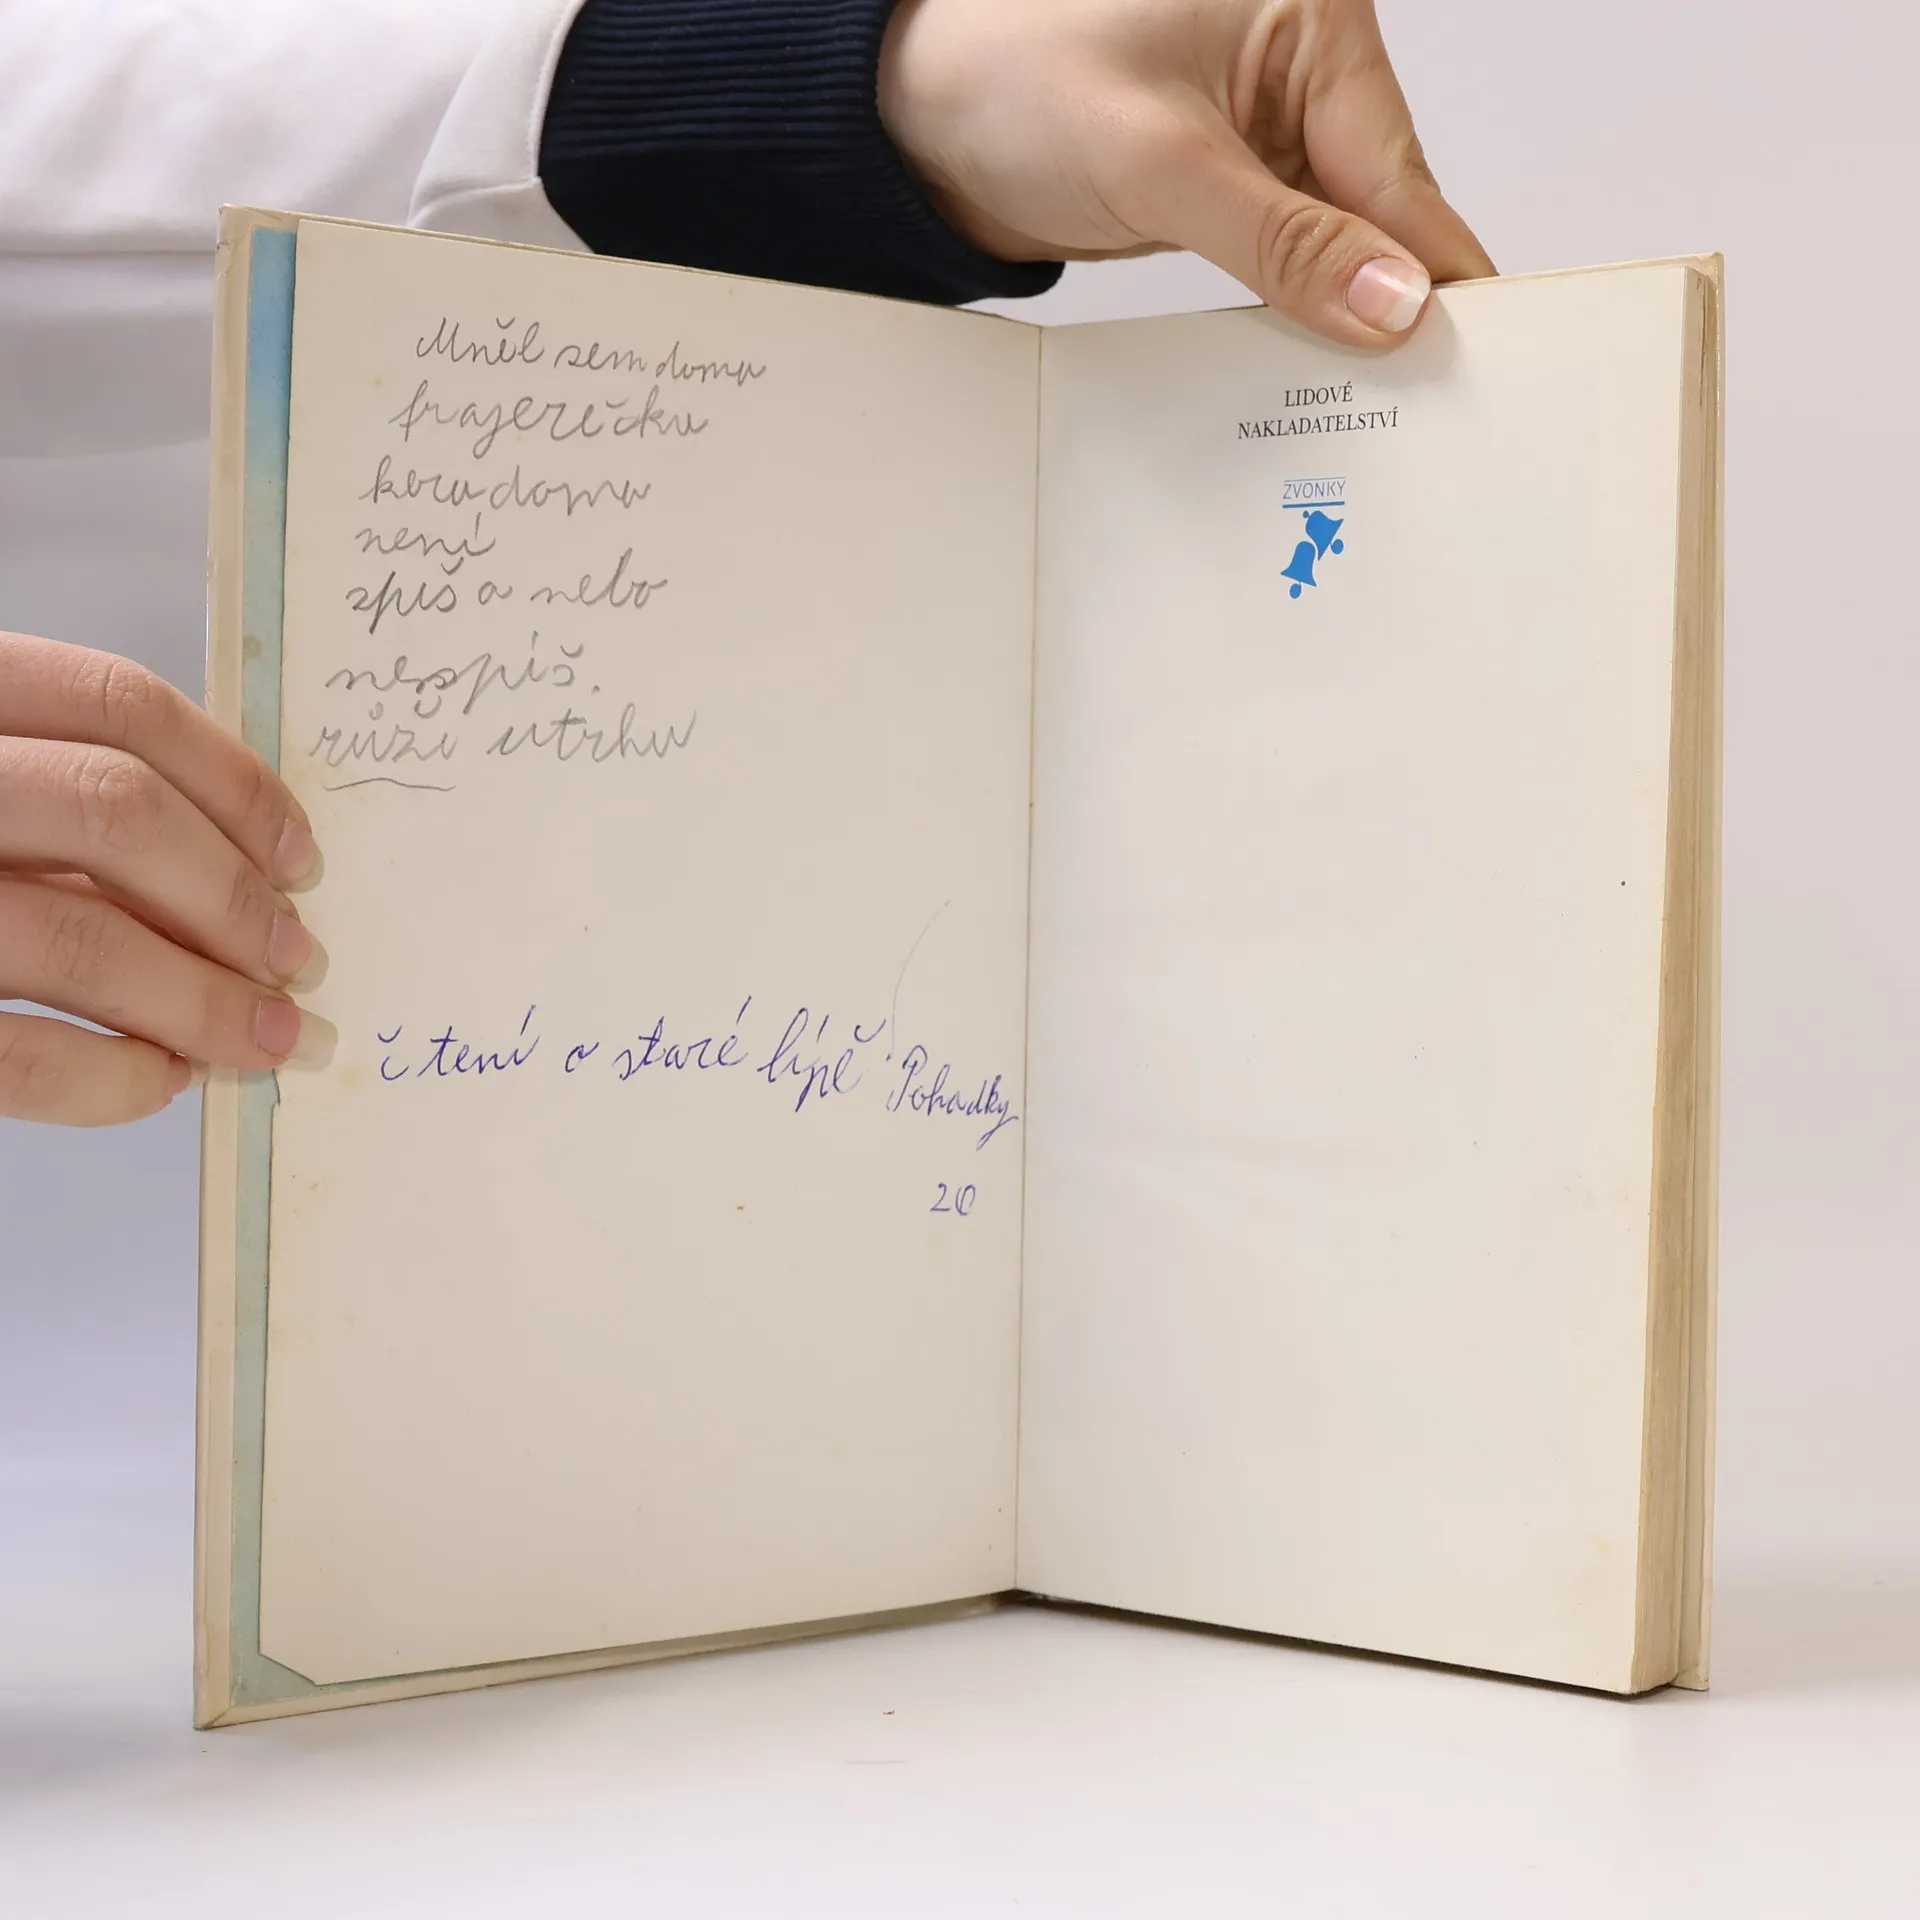 Mněl sem doma
frajerečku
kera doma
není
spíš a nebo
nespíš.
růži utrhu
čtení o staré lípě Pohadky
20
LIDOVÉ
NAKLADATELSTVÍ
ZVONKY